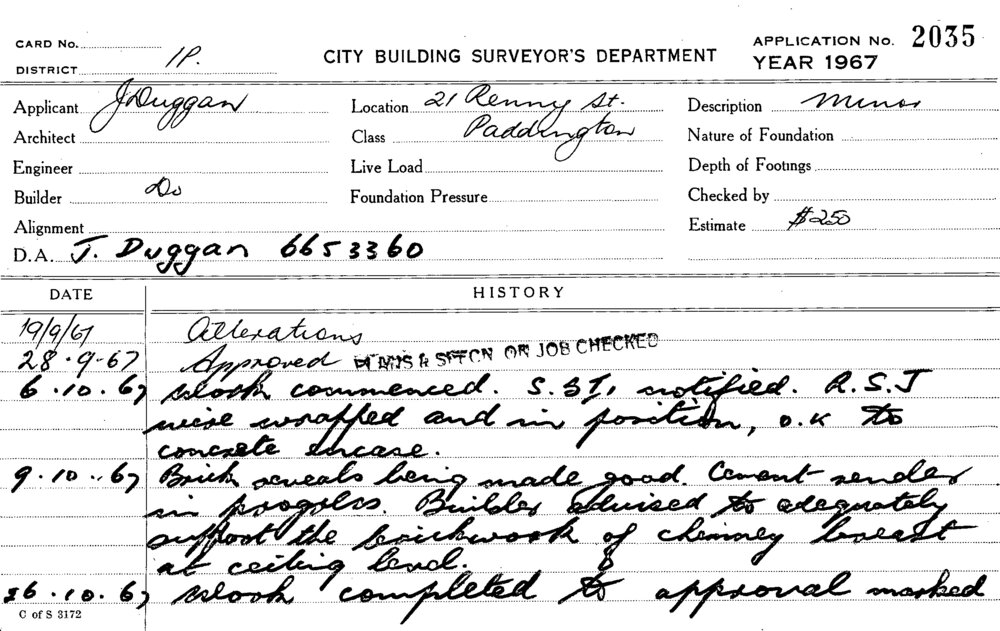 CARD No.
DISTRICT 1P.
CITY BUILDING SURVEYOR'S DEPARTMENT
APPLICATION No. 2035
YEAR 1967
Applicant J Duggan
Location 21 Renny St.
Description Minor
Architect
Class Paddington
Nature of Foundation
Engineer
Live Load
Depth of Footings
Builder Do
Foundation Pressure
Checked by
Alignment
Estimate $250
D.A. J. Duggan 6653360
DATE HISTORY
19/9/67 Alterations
28.9.67 Approved PLANS & SPECN ON JOB CHECKED
6.10.67 Work commenced. S.3T, notified. R.S.J
wire wrapped and in position, O.K to
concrete encase.
9.10.67 Brick reveals being made good. Cement render
in progress. Builder advised to adequately
support the brickwork of chimney breast
at ceiling level.
26.10.67 Work completed to approval marked
C of S 3172